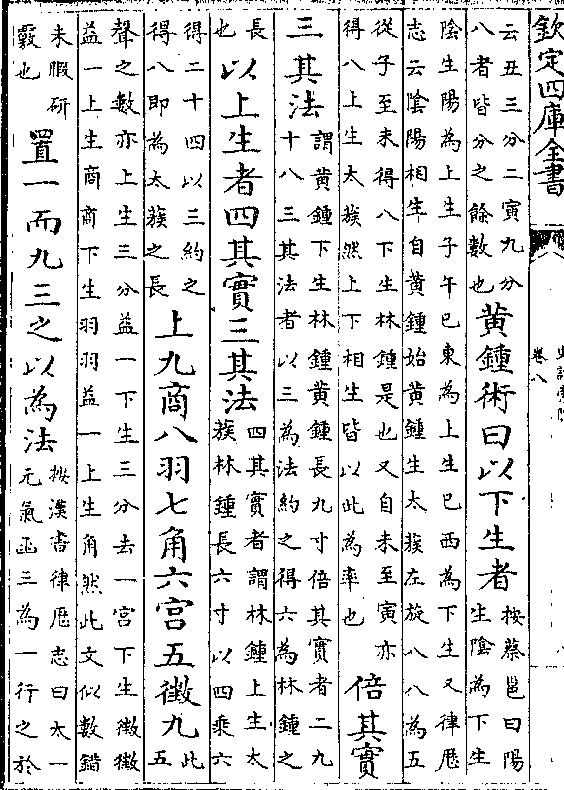 欽定四庫全書
卷八
云丑三分二寅九分
八者皆分之餘數也
黃鍾術曰以下生者
按蔡邕曰陽
生陰為下生
陰生陽為上生子午巳東為上生巳西為下生又律歷
志云陰陽相生自黃鍾始黃鍾生太蔟左旋八八為五
從子至未得八下生林鍾是也又自未至寅亦
得八上生太蔟然上下相生皆以此為率也
倍其實
三其法
謂黃鍾下生林鍾黃鍾長九寸倍其實者二九
十八三其法者以三為法約之得六為林鍾之
長
也
以上生者四其實三其法
四其實者謂林鍾上生太
蔟林鍾長六寸以四乘六
得二十四以三約之
得八即為太蔟之長
上九商八羽七角六宮五徵九
此
五
聲之數亦上生三分益一下生三分去一宮下生徵徵
益一上生商商下生羽羽益一上生角然此文似數錯
未暇研
覈也
置一而九三之以為法
按漢書律歷志曰太一
元氣函三為一行之於